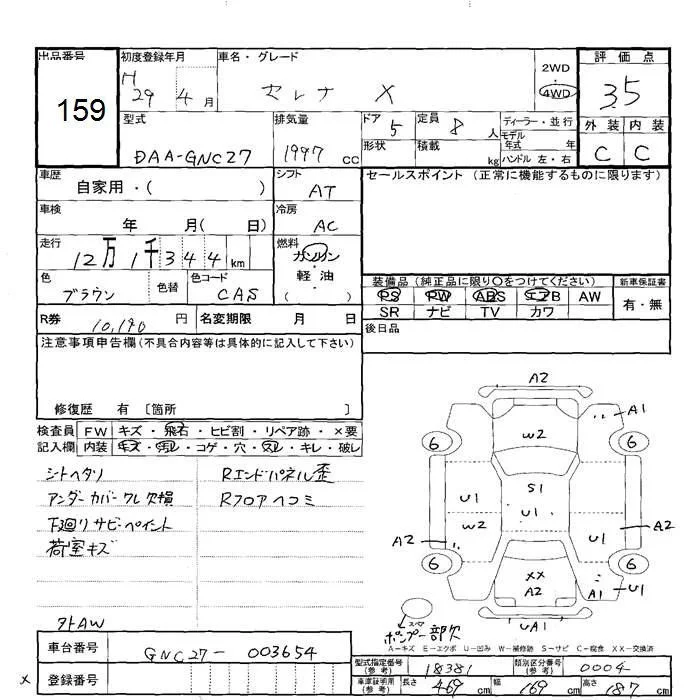 出品番号 初度登録年月 車名・グレード 評価点
159 H 29 4月 セレナ X 2WD 4WD 3.5
型式 排気量 ドア 定員 ディーラー・並行 外装 内装
DAA-GNC27 1997 cc 5 8 人 モデル年式 年 C C
形状 積載 kg ハンドル 左・右
車歴 自家用・( ) シフト AT セールスポイント (正常に機能するものに限ります)
車検 年 月( 日) 冷房 AC
走行 12万1千344km 燃料 ガソリン・軽油 ( )
色 ブラウン 色替 色コード CAS
装備品 (純正品に限り○をつけてください) 新車保証書
PS PW ABS エアB AW 有・無
SR ナビ TV カワ
R券 10,190 円 名変期限 月 日 後日品
注意事項申告欄(不具合内容等は具体的に記入して下さい)
修復歴 有 〔箇所 〕
検査員 FW キズ・飛石・ヒビ割・リペア跡・×要
記入欄 内装 キズ・汚レ・コゲ・穴・スレ・キレ・破レ
シートヘタリ Rエンドパネル歪
アンダーカバーワレ欠損 Rフロアヘコミ
下廻りサビ・ペイント
荷室キズ
外AW
A2
A1
W2
6 6
S1
U1 U1
W2 U1
A2 A2
6 6
XX
A2
A1 U1
UA1
スペア
ポンプ一部欠
A-キズ E-エクボ U-凹み W-補修跡 S-サビ C-腐食 XX-交換済
車台番号 GNC27-003654
型式指定番号(参考) 18381 類別区分番号(参考) 0004
× 登録番号
車庫証明用(参考) 長さ 469 cm 幅 169 cm 高さ 187 cm